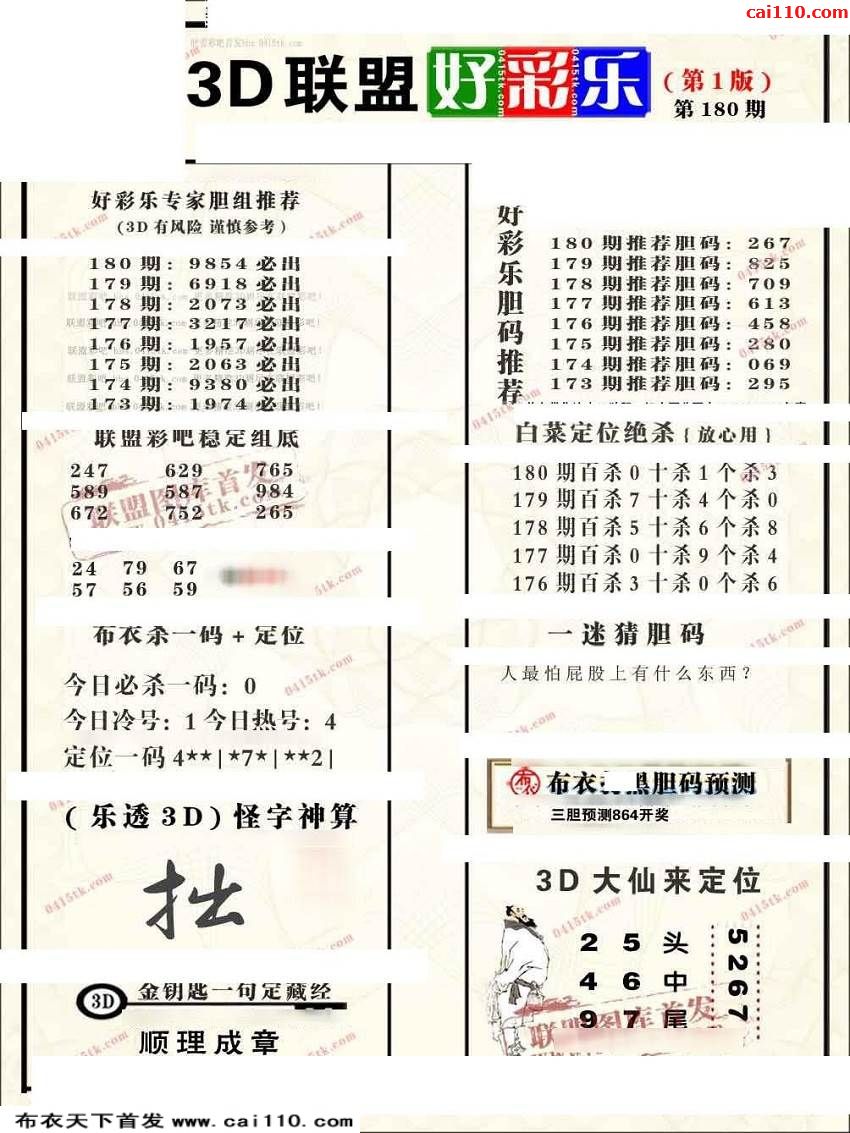 cai110.com
3D联盟好彩乐
(第1版)
第180期
好彩乐专家胆组推荐
(3D有风险 谨慎参考)
180期: 9854必出
179期: 6918必出
178期: 2073必出
177期: 3217必出
176期: 1957必出
175期: 2063必出
174期: 9380必出
173期: 1974必出
联盟彩吧稳定组底
247 629 765
589 587 984
672 752 265
24 79 67
57 56 59
布衣杀一码+定位
今日必杀一码: 0
今日冷号: 1 今日热号: 4
定位一码 4**|*7*|**2|
(乐透3D)怪字神算
拙
3D 金钥匙一句定藏经
顺理成章
好彩乐胆码推荐
180期推荐胆码: 267
179期推荐胆码: 825
178期推荐胆码: 709
177期推荐胆码: 613
176期推荐胆码: 458
175期推荐胆码: 280
174期推荐胆码: 069
173期推荐胆码: 295
白菜定位绝杀{放心用}
180期百杀0十杀1个杀3
179期百杀7十杀4个杀0
178期百杀5十杀6个杀8
177期百杀0十杀9个杀4
176期百杀3十杀0个杀6
一迷猜胆码
人最怕屁股上有什么东西?
布衣 胆码预测
三胆预测864开奖
3D大仙来定位
2 5 头
4 6 中
9 7 尾
5267
联盟图库首发
0415tk.com
布衣天下首发 www.cai110.com